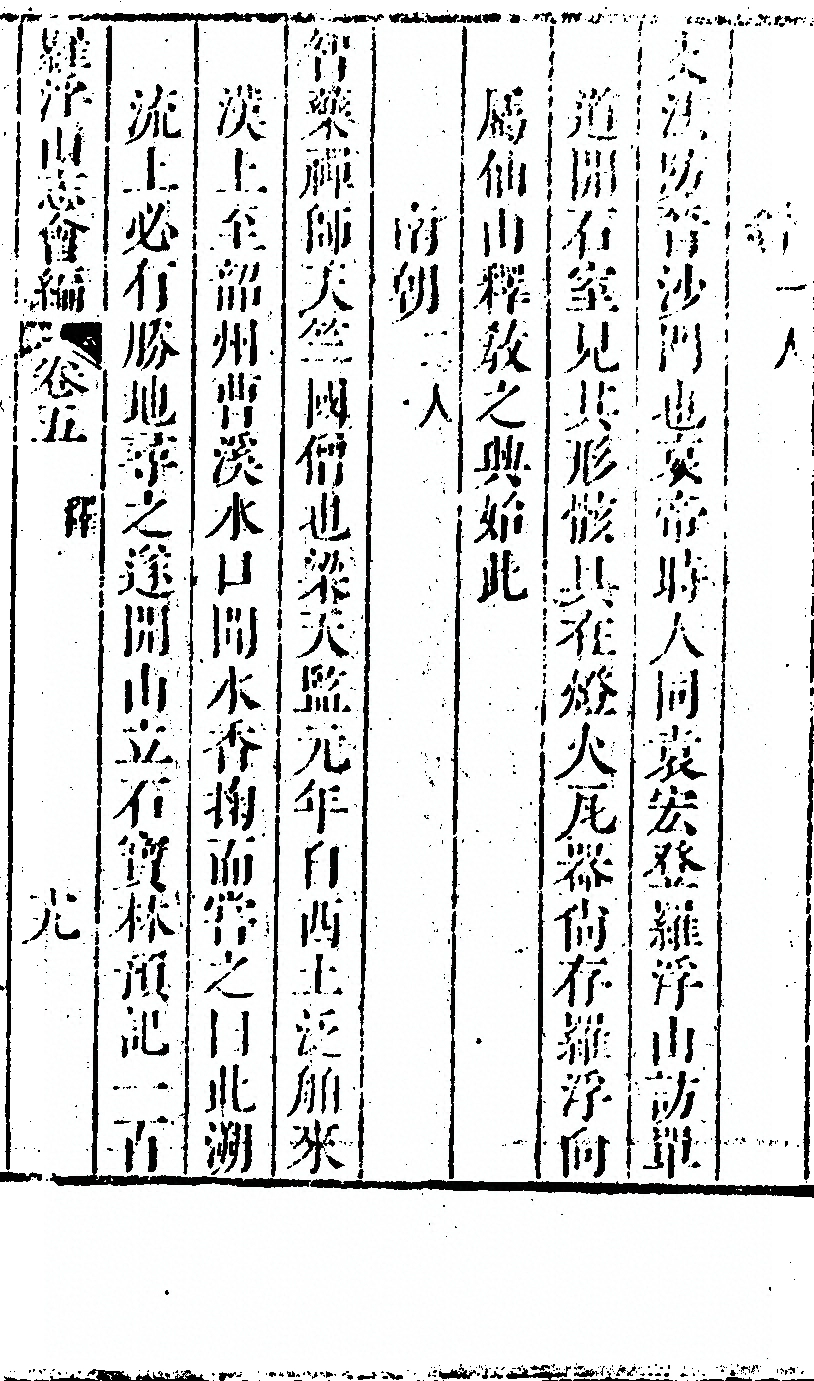 一人
支法防晉沙門也哀帝時人同袁宏登羅浮山訪單
道開石室見其形骸具在燈火瓦器尚存羅浮向
屬仙山釋教之興始此
南朝二人
智藥禪師天竺國僧也梁天監元年自西土泛舶來
漢土至韶州曹溪水口聞水香掬而嘗之曰此溯
流上必有勝地尋之遂開山立石寶林預記一百
羅浮山志會編 卷五 釋